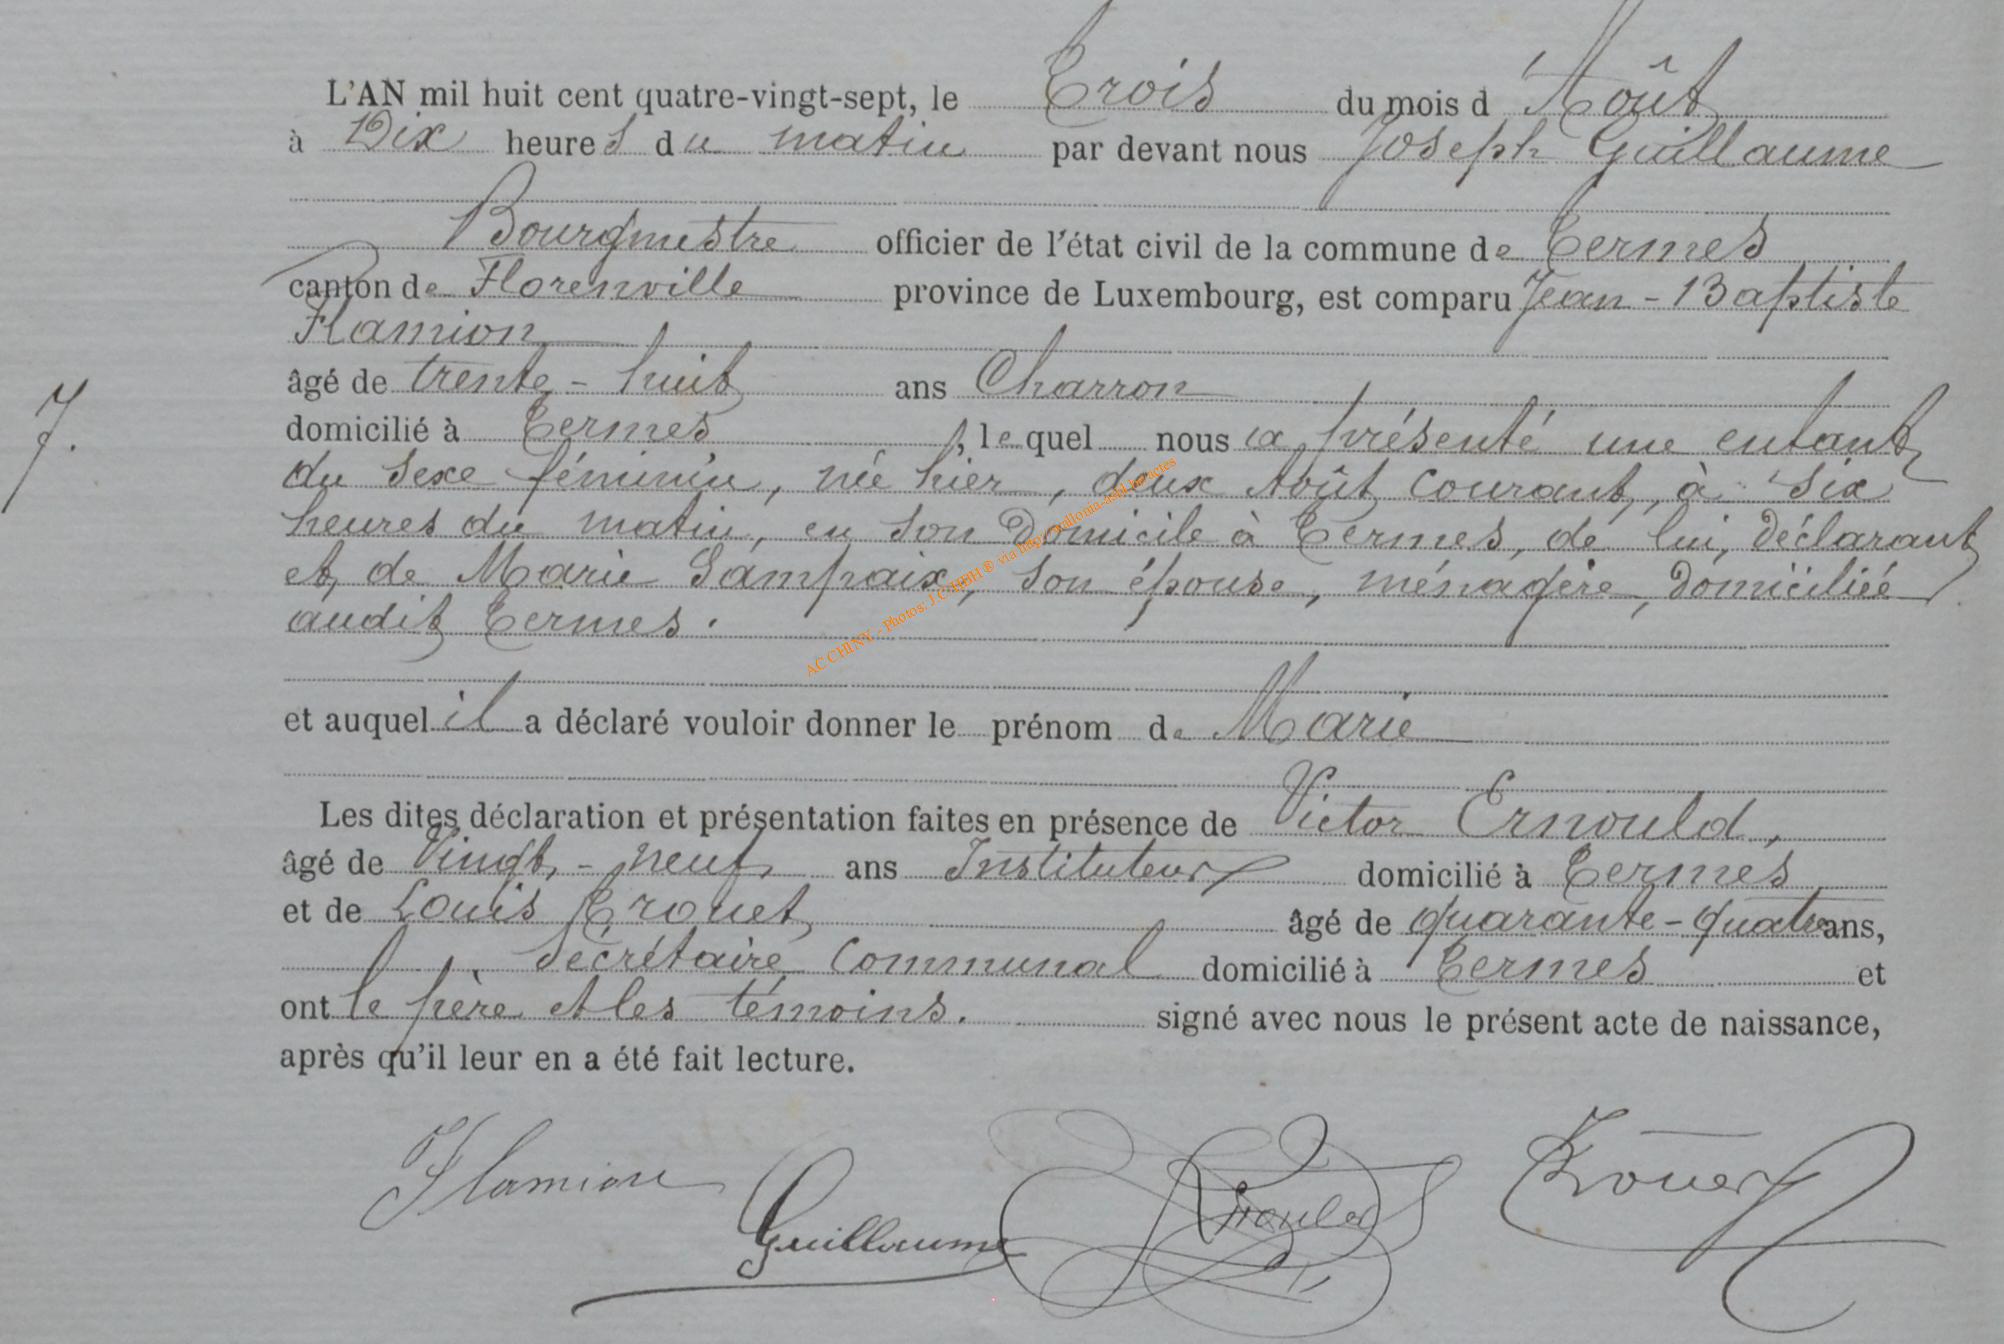 L'AN mil huit cent quatre-vingt-sept, le Trois du mois d Août
à Dix heures du matin par devant nous Joseph Guillaume
Bourgmestre officier de l'état civil de la commune de Termes
canton de Florenville province de Luxembourg, est comparu Jean-Baptiste
Flamion
âgé de trente-huit ans Charron
domicilié à Termes, lequel nous a présenté une enfant
7.
du sexe féminin, née hier, deux Août courant, à six
heures du matin, en son domicile à Termes, de lui, déclarant
et de Marie Sampaix, son épouse, ménagère, domiciliée
audit Termes.
et auquel il a déclaré vouloir donner le prénom de Marie
Les dites déclaration et présentation faites en présence de Victor Ernould,
âgé de vingt-neuf ans Instituteur domicilié à Termes
et de Louis Trouet âgé de quarante-quatre ans,
secrétaire communal domicilié à Termes et
ont le père et les témoins. signé avec nous le présent acte de naissance,
après qu'il leur en a été fait lecture.
Flamion Guillaume Ernould Trouet
AC CHINY - Photos. J.C.HBH ® via